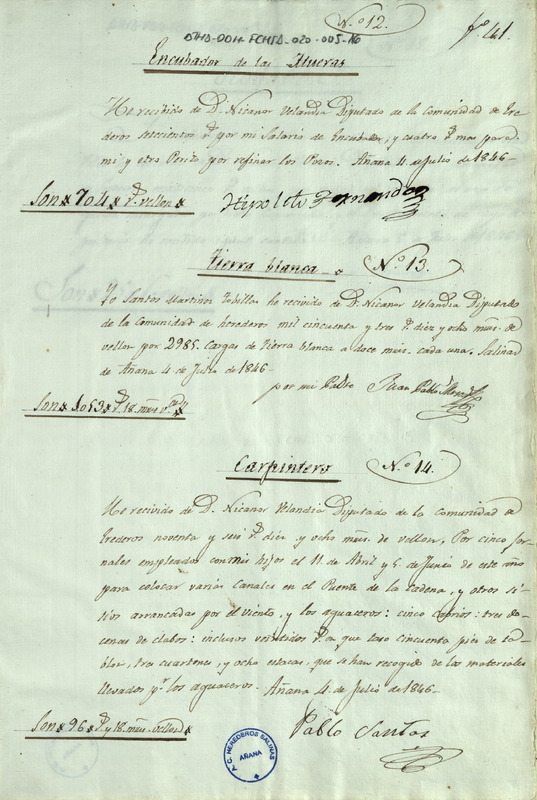 N.º 12.
fº 41.
ATHA-DAH-FCHSA-020-005-16
Encubador de las Mueras
He recibido de D. Nicanor Velandia Diputado de la Comunidad de Ere
deros setecientos r.s por mi Salario de Encubador, y cuatro r.s mas para
mi y otro Perito por refinar los Pozos. Añana 4 de julio de 1846-
Son # 704 # r.s vellon #
Hipolito Fernandez
Tierra blanca
N.º 13.
Yo Santos Martinez Tobillas he recivido de D. Nicanor Velandia Diputado
de la Comunidad de herederos mil cincuenta y tres r.s diez y ocho mrs. de
vellon por 2985. Cargas de Tierra blanca a doce mrs. cada una. Salinas
de Añana 4 de julio de 1846-
por mi Padre Juan Pablo
Son # 1053 # r.s 18. mrs v.on #
Carpintero
N.º 14.
He recivido de D. Nicanor Velandia Diputado de la Comunidad de
Erederos noventa y seis r.s diez y ocho mrs. de vellon. Por cinco jor-
nales empleados con mis hijos el 11 de Abril y 5 de Junio de este año
para colocar varias Canales en el Puente de la Cadena, y otros si-
tios arrancadas por el viento, y los aguaceros: cinco Cabrios: tres do-
cenas de clabos: inclusos veintidos r.s a que taso cincuenta pies de ta-
blon, tres cuartones, y ocho estacas, que se han recogido de los materiales
llevados p.r los aguaceros. Añana 4 de Julio de 1846-
Son # 96 # r.s y 18. mrs vellon #
Pablo Santos
C. HEREDEROS SALINAS
AÑANA